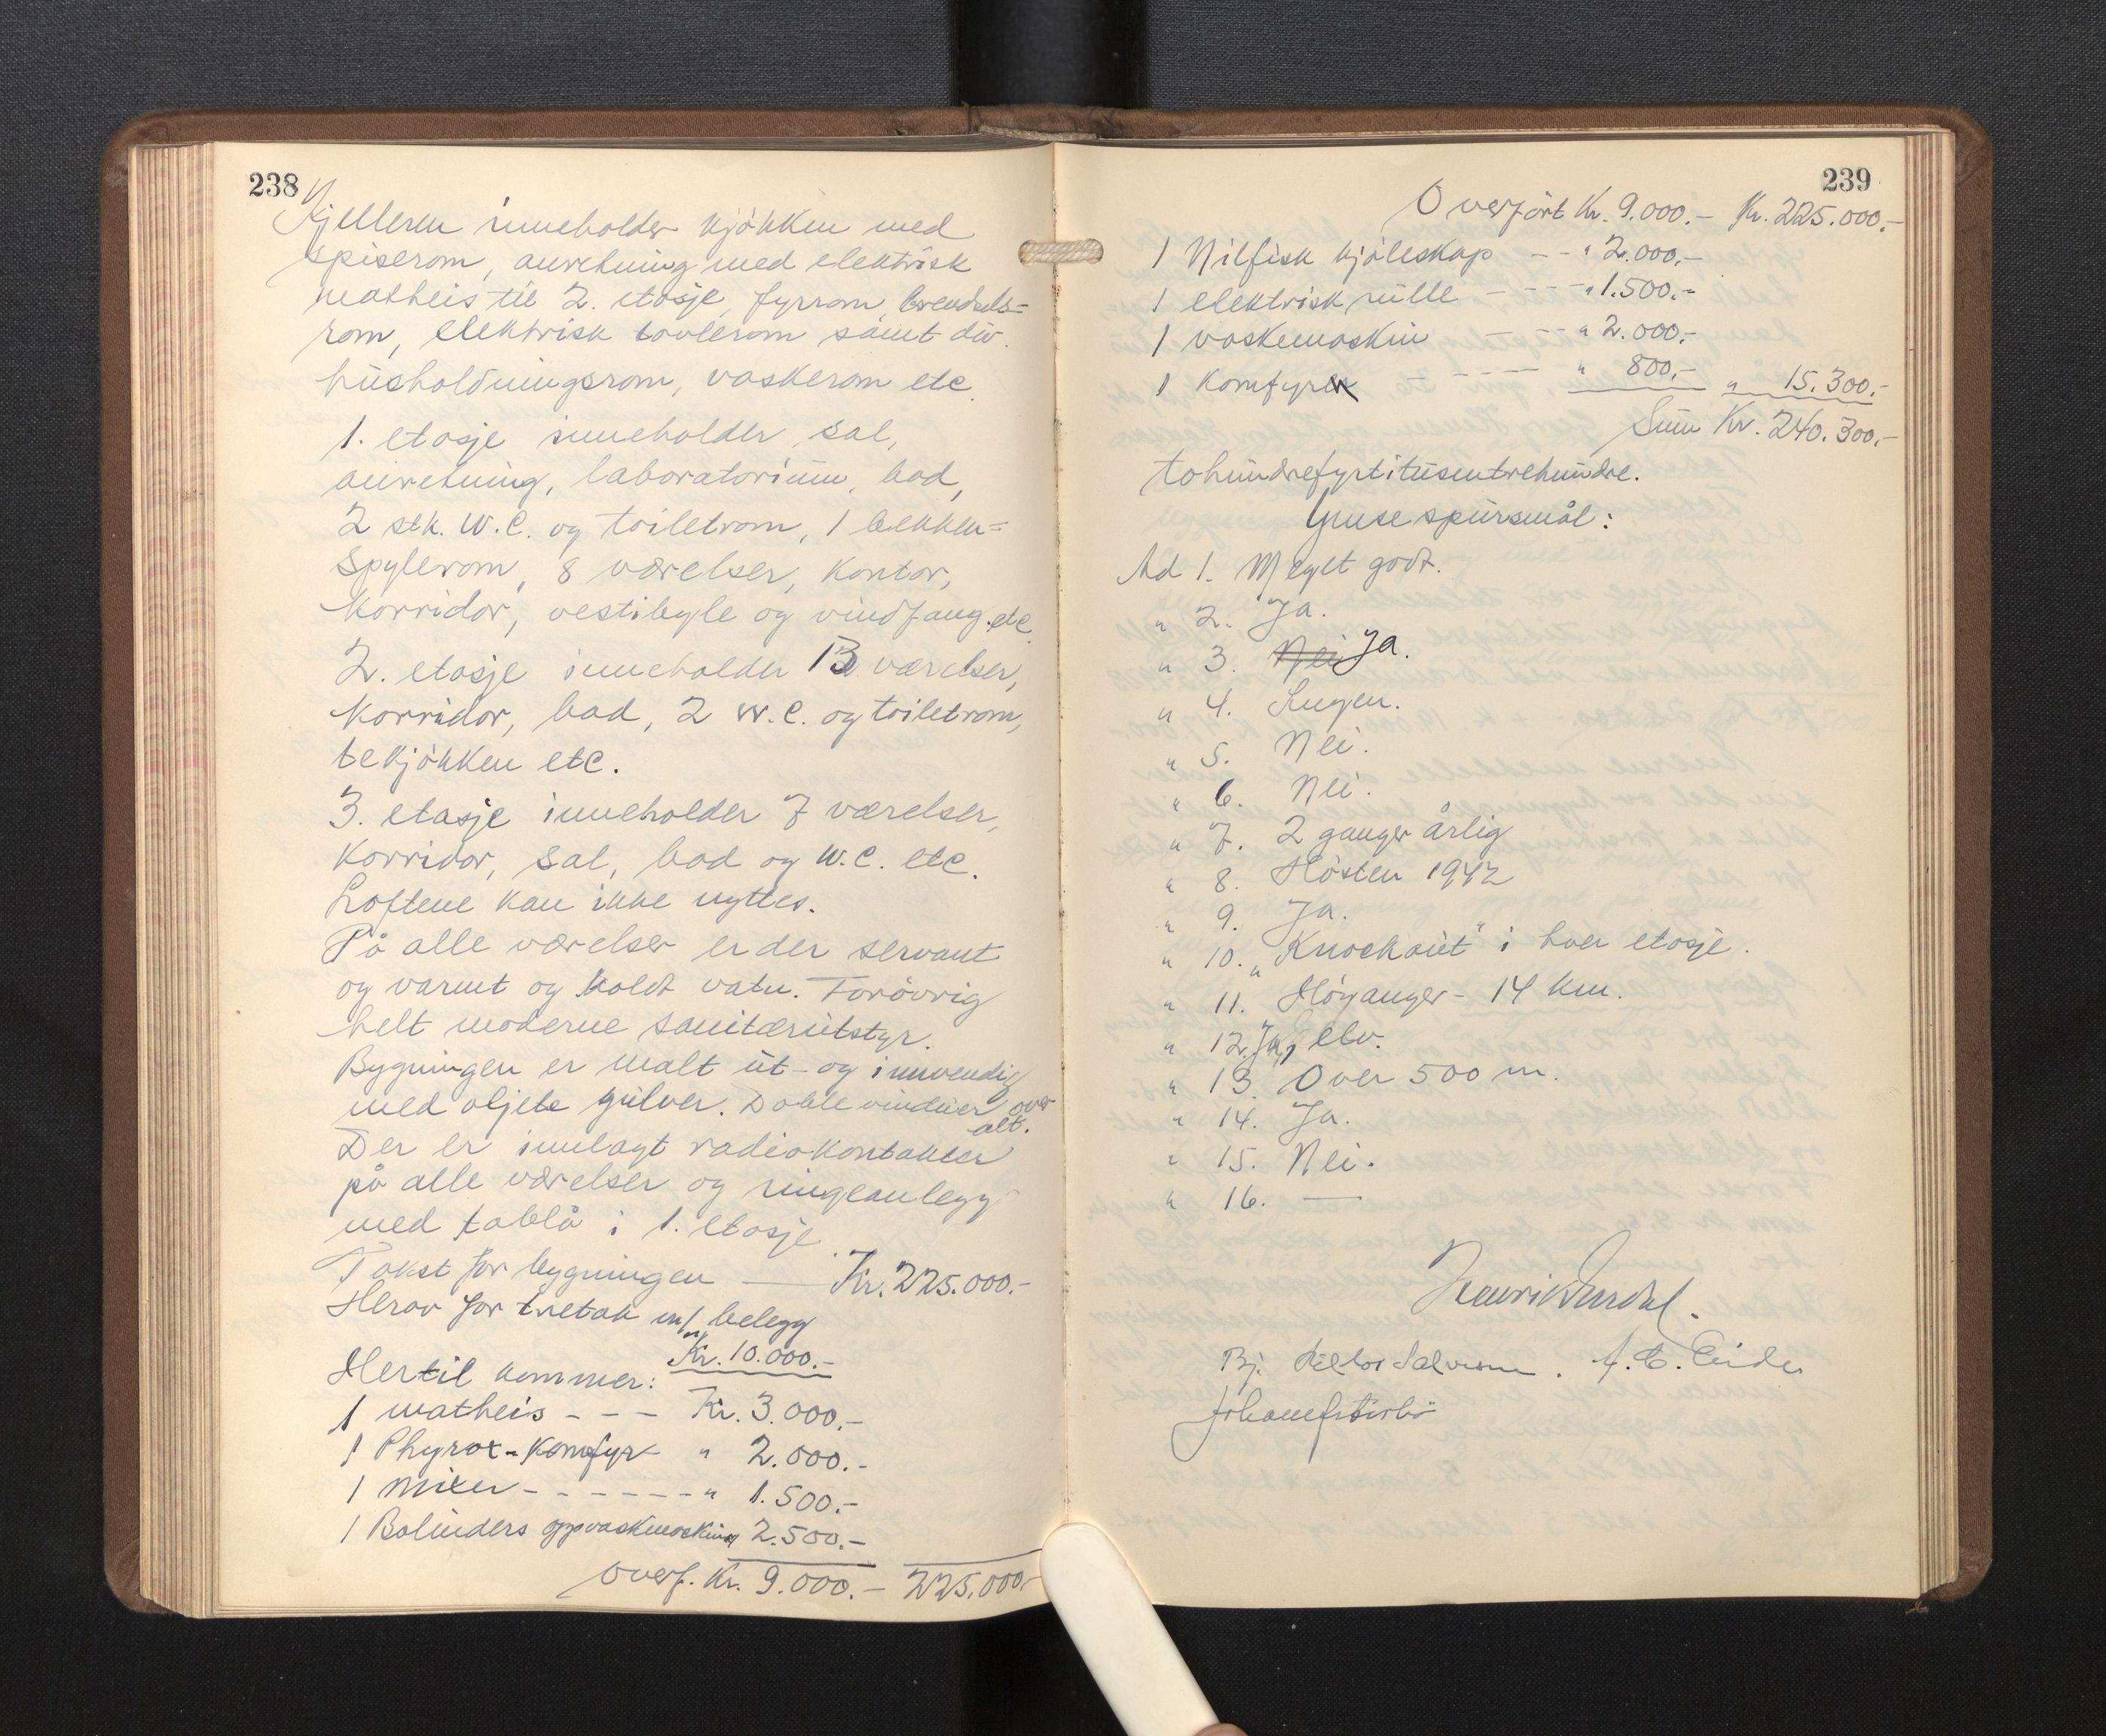 238
Kjelleren inneholder kjøkken med
spiserom, anretning med elektrisk
matheis til 2. etasje, fyrrom, brendsels=
rom, elektrisk tavlerom samt div.
husholdningsrom, vaskerom etc.
1. etasje inneholder sal,
anretning, laboratorium, bad,
2 stk. W.C. og toiletrom, 1 bekken=
spylerom, 8 værelser, kontor,
korridor, vestibyle og vindfang etc.
2. etasje inneholder 13 værelser,
korridor, bad, 2 W.C. og toiletrom,
tekjøkken etc.
3. etasje inneholder 7 værelser,
korridor, sal, bad og W.C. etc.
Loftene kan ikke nyttes.
På alle værelser er der servant
og varmt og koldt vatn. Forøvrig
helt moderne sanitærutstyr.
Bygningen er malt ut- og innvendig
med oljete gulver. Doble vinduer over
alt.
Der er innlagt radiokontakter
på alle værelser og ringeanlegg
med tablå i 1. etasje.
Takst for bygningen — Kr. 225.000.-
Herav for tretak m/ belegg
Kr. 10.000.-
Hertil kommer:
1 matheis - - - Kr. 3.000.-
1 Phyrox-Komfyr " 2.000.-
1 Mixer - - - - - - - " 1.500.-
1 Bolinders oppvaskmaskin " 2.500.-
overf. Kr. 9.000.- 225.000.-
239
Overført Kr. 9.000.- Kr. 225.000.-
1 Nilfisk kjøleskap - - " 2.000.-
1 elektrisk rulle - - - - " 1.500.-
1 vaskemaskin - - - " 2.000.-
1 Komfyr - - - - - " 800.- " 15.300.-
Sum Kr. 240.300.-
tohundrefyrtitusentrehundre.
Ymse spursmål:
Ad 1. Meget godt.
" 2. Ja.
" 3. Nei Ja.
" 4. Ingen.
" 5. Nei.
" 6. Nei.
" 7. 2 ganger årlig
" 8. Høsten 1942
" 9. Ja.
" 10. „Knockout" i hver etasje.
" 11. Høyanger - 14 km.
" 12. Ja, elv.
" 13. Over 500 m.
" 14. Ja.
" 15. Nei.
" 16. —
Bj.